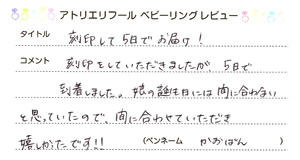 アトリエリフール ベビーリングレビュー
タイトル 刻印して5日でお届け!
コメント 刻印をしていただきましたが、5日で
到着しました。娘の誕生日には間に合わない
と思っていたので、間に合わせていただき
嬉しかったです!! (ペンネーム かおぽん )